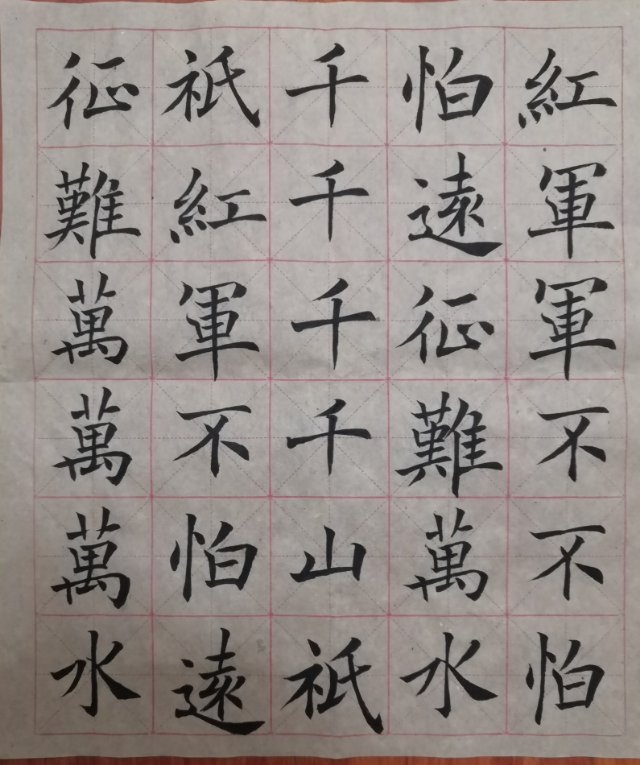 紅軍軍不不怕
怕遠征難萬水
千千千千山祇
祇紅軍不怕遠
征難萬萬萬水